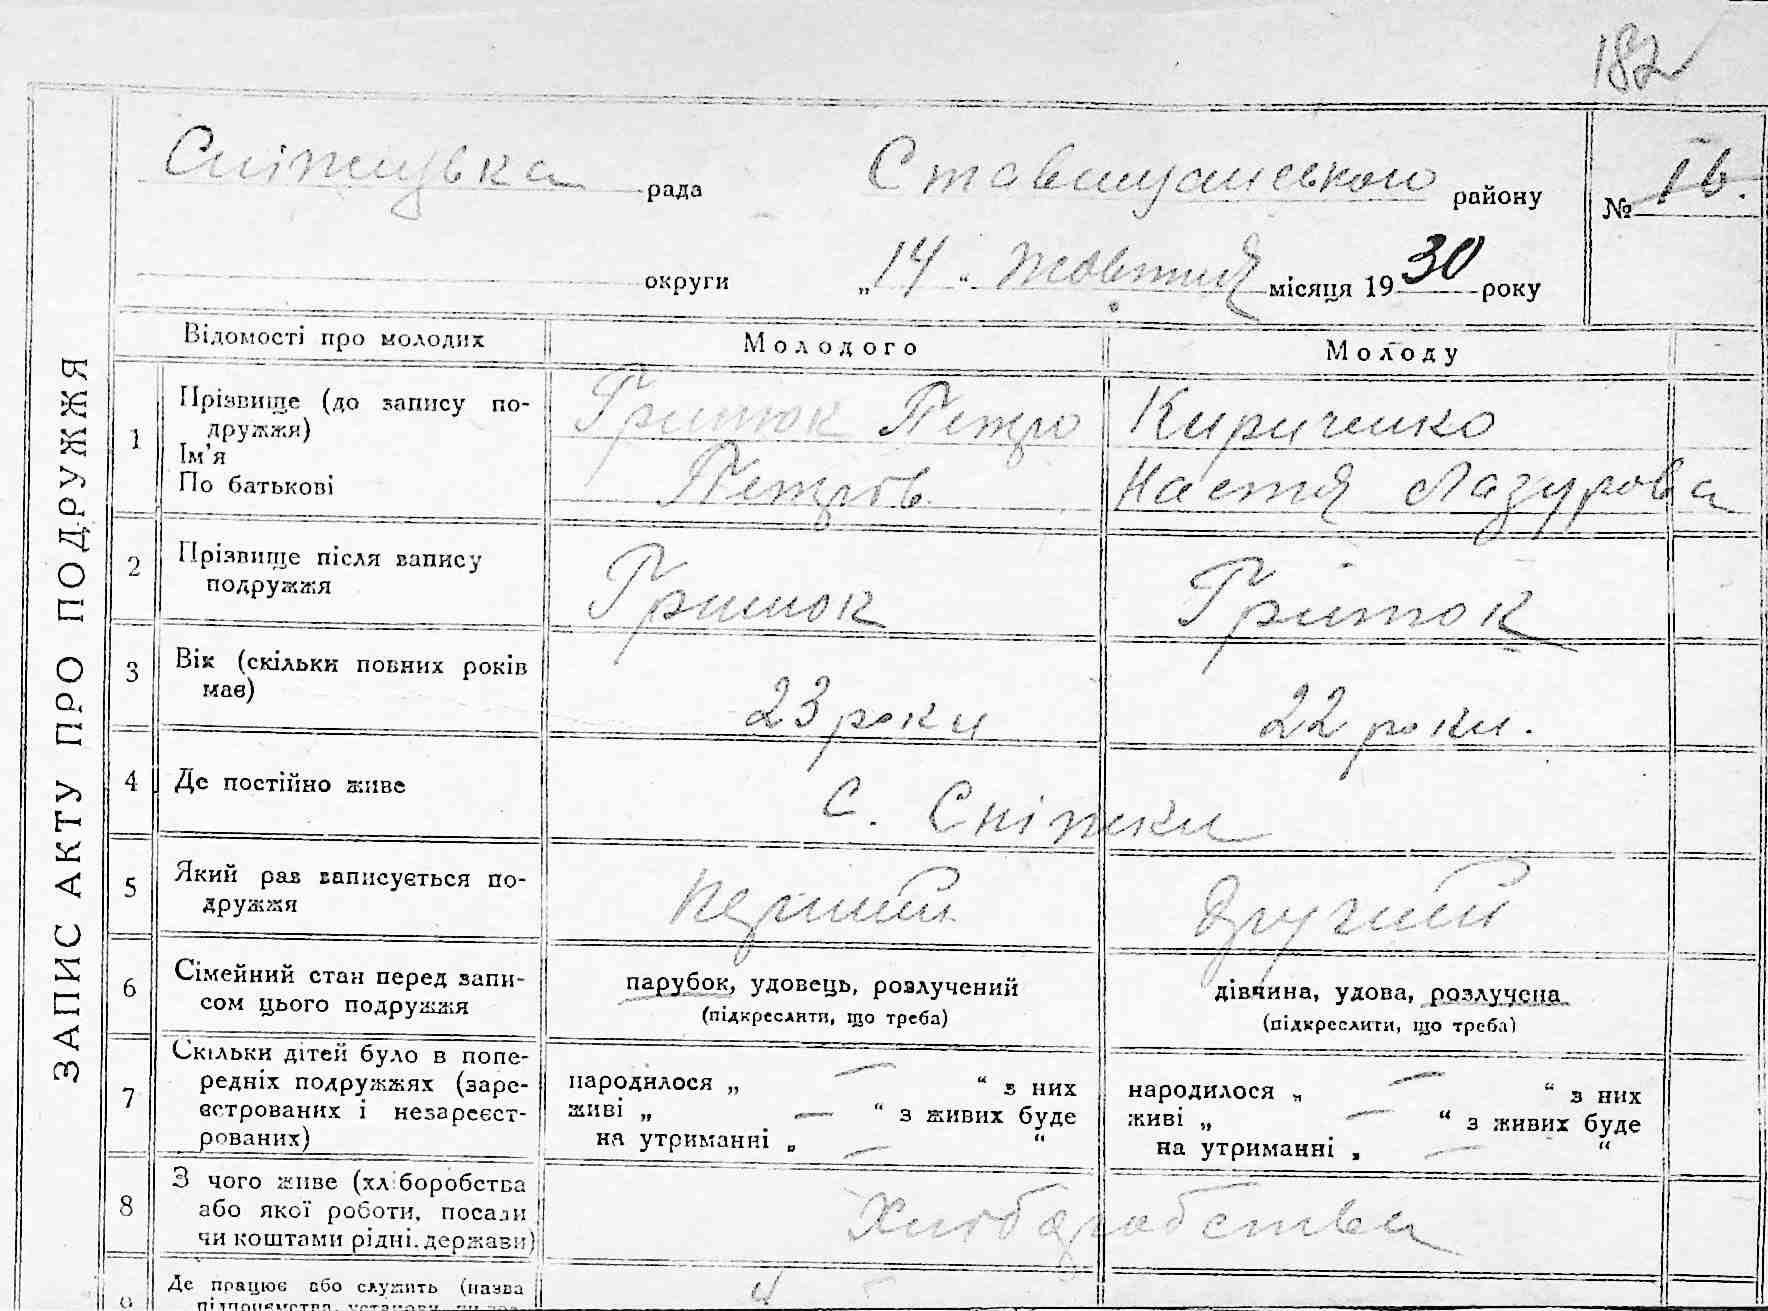 182
Сніжицька рада Ставищанського району № 16.
округи „14“ жовтня місяця 1930 року
ЗАПИС АКТУ ПРО ПОДРУЖЖЯ
Відомості про молодих Молодого Молоду
1 Прізвище (до запису по- Грищюк Петро Кириченко
дружжя)
Ім’я
По батькові Петров. Настя Лазурова
2 Прізвище після запису
подружжя Грищюк Грищюк
3 Вік (скільки повних років
має) 23 роки 22 роки.
4 Де постійно живе с. Сніжки
5 Який раз записується по- перший другий
дружжя
6 Сімейний стан перед запи- парубок, удовець, розлучений дівчина, удова, розлучена
сом цього подружжя (підкреслити, що треба) (підкреслити, що треба)
7 Скільки дітей було в попе-
редніх подружжях (заре- народилося „ — “ з них народилося „ — “ з них
єстрованих і незареєст- живі „ — “ з живих буде живі „ — “ з живих буде
рованих) на утриманні „ — “ на утриманні „ — “
8 З чого живе (хліборобства
або якої роботи, посади Хліборобства
чи коштами рідні, держави)
9 Де працює або служить (назва
підприємства, установи